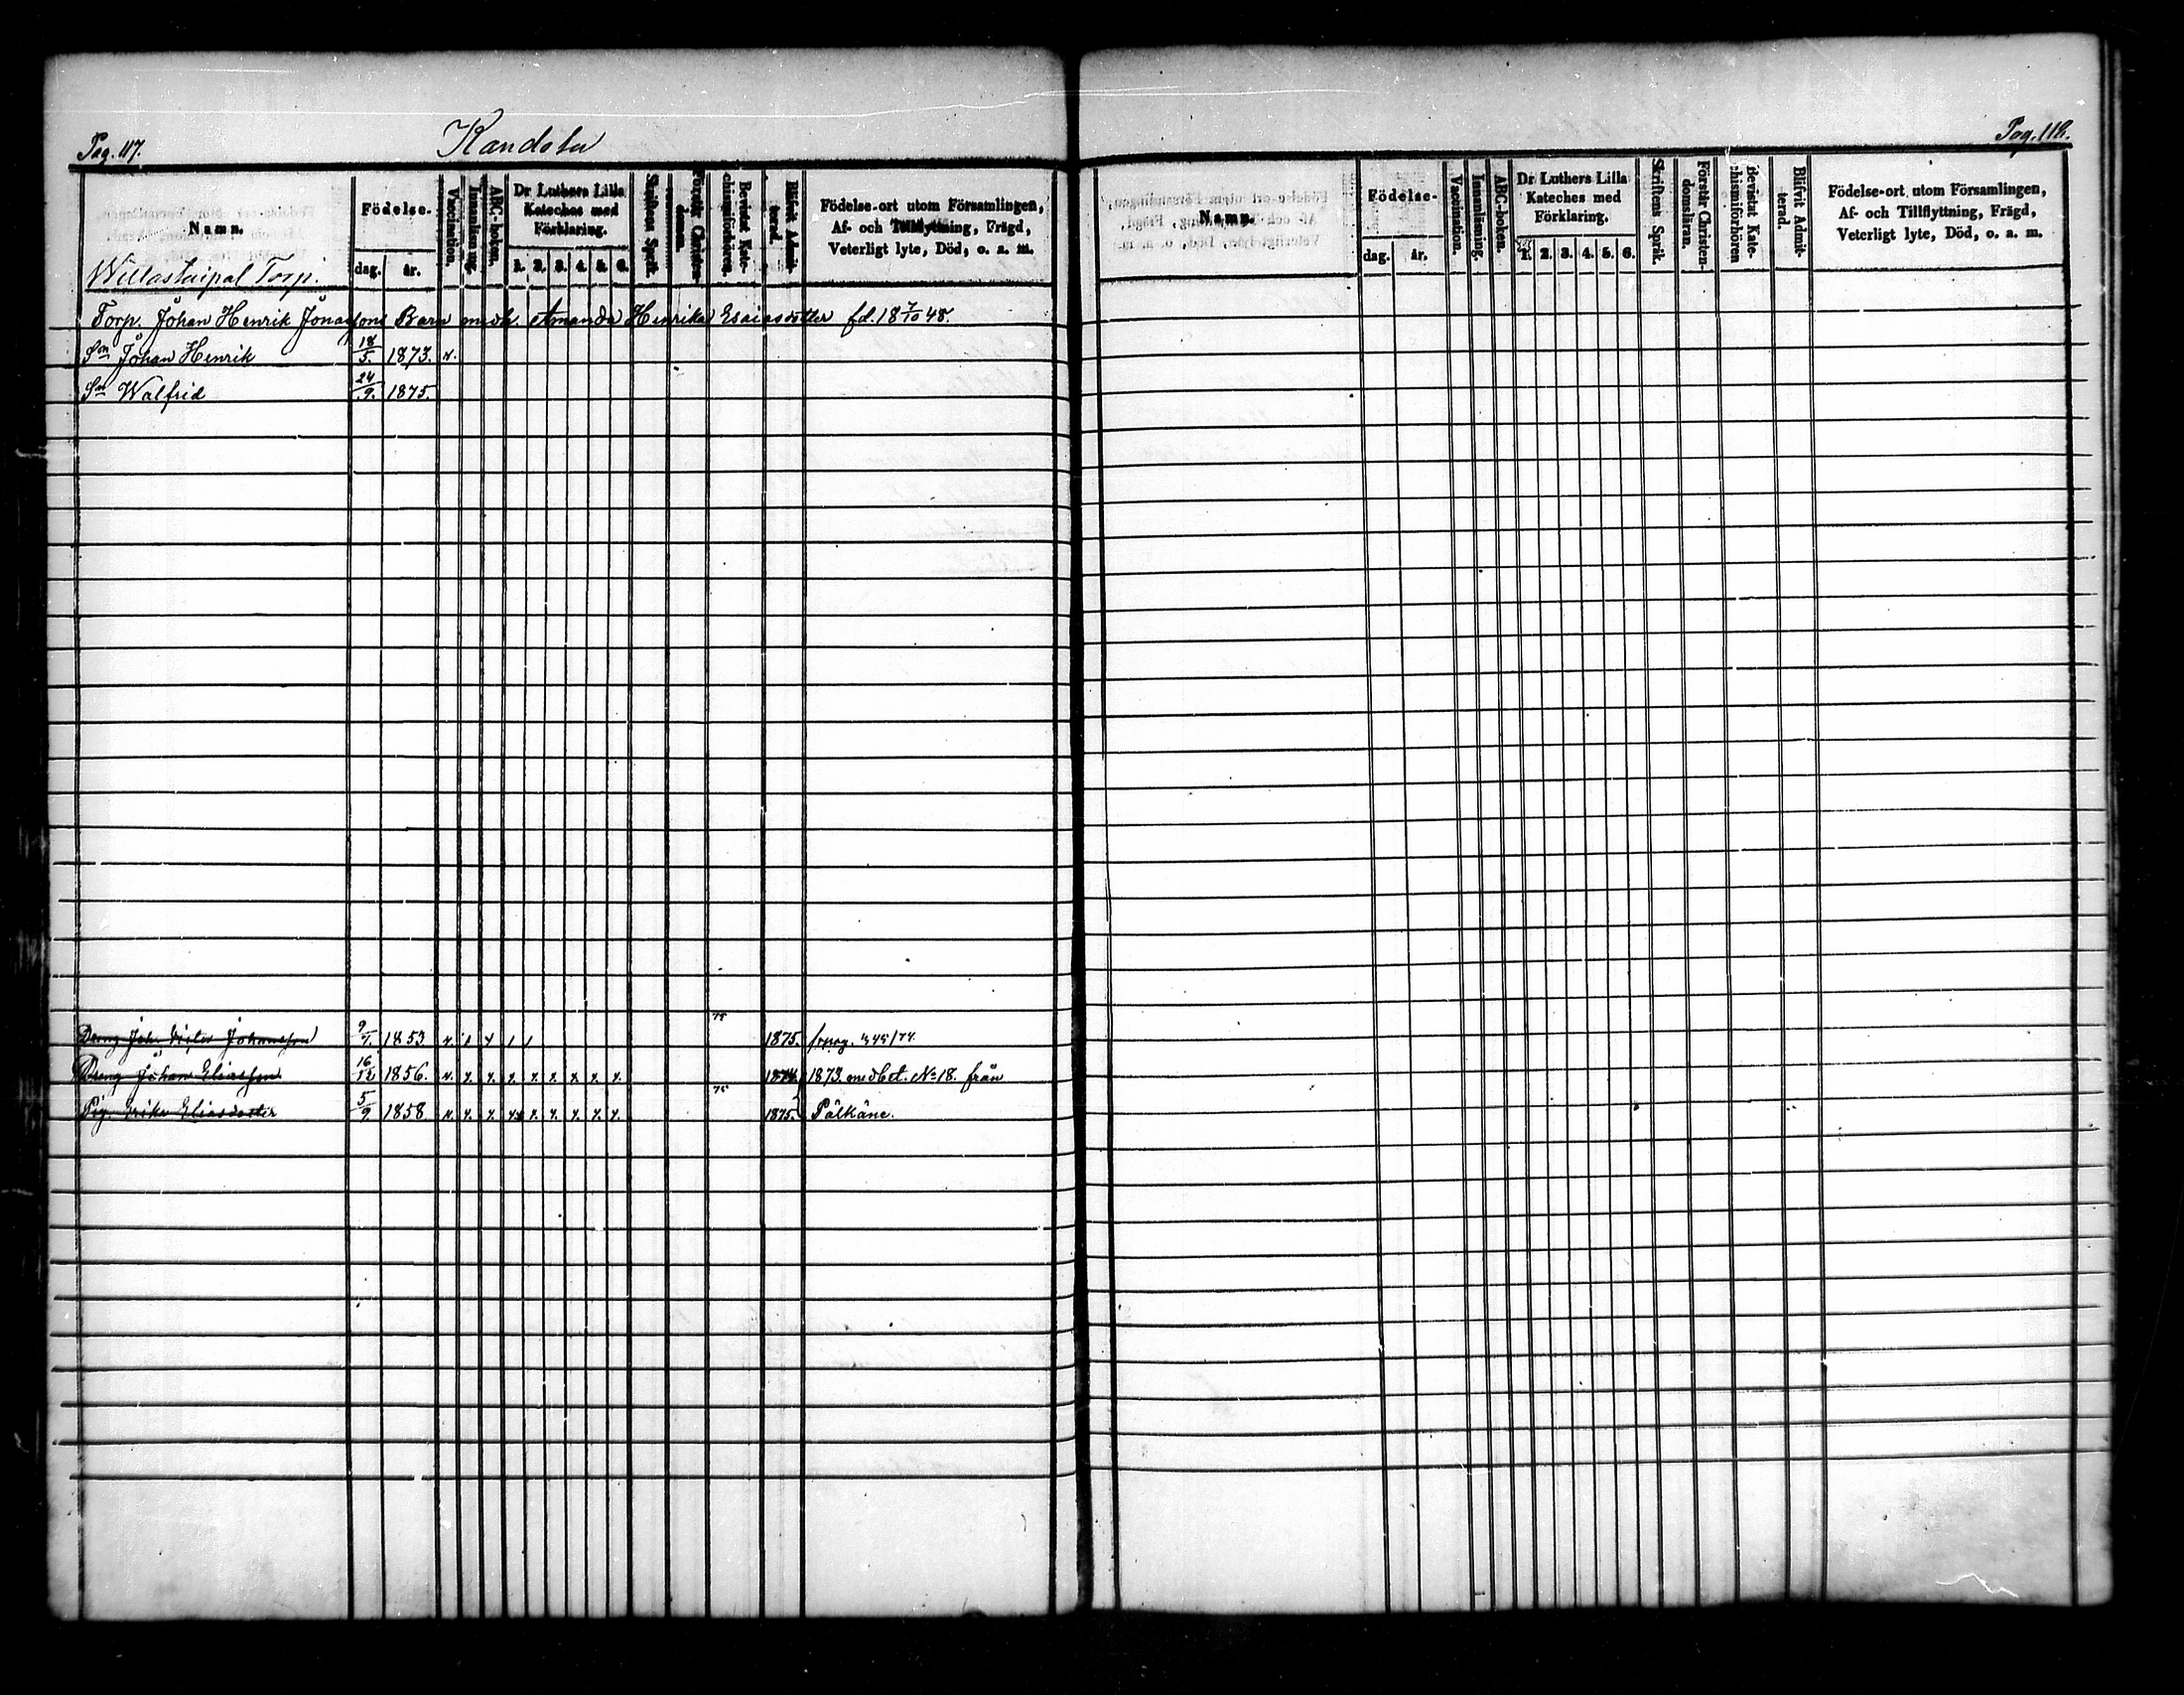 Pag. 117.
Kandola
Namn.
Födelse-
dag. år.
Vaccination.
Innanläsning.
ABC-boken.
Dr Luthers Lilla
Kateches med
Förklaring.
1. 2. 3. 4. 5. 6.
Skriftens Språk.
Förstår Christen-
domen.
Bevistat Kate-
chismiförhören.
Blifvit Admit-
terad.
Födelse-ort utom Församlingen,
Af- och Tillflyttning, Frägd,
Veterligt lyte, Död, o. a. m.
Willastaipal Torp.
Torp. Johan Henrik Jonassons Barn med h. Amanda Henrika Esaiasdotter fd. 18 7/10 48.
Sn Johan Henrik 18/5 1873. v.
Sn Walfrid 24/9. 1875.
75
Dreng Joh. Johansson 9/7. 1853 1875.
Dreng Johan Eliasson 16/12 1856. v. x. x. x. x. x. x. x. x. 1874 1873. med bet. No 18. från
75
Pig. Erika Eliasdotter 5/9 1858 v. x. x. x. x. x. x. x. x. 1875. Pälkäne.
Pag. 118.
Namn.
Födelse-
dag. år.
Vaccination.
Innanläsning.
ABC-boken.
Dr Luthers Lilla
Kateches med
Förklaring.
1. 2. 3. 4. 5. 6.
Skriftens Språk.
Förstår Christen-
domsläran.
Bevistat Kate-
chismiförhören
Blifvit Admit-
terad.
Födelse-ort utom Församlingen,
Af- och Tillflyttning, Frägd,
Veterligt lyte, Död, o. a. m.